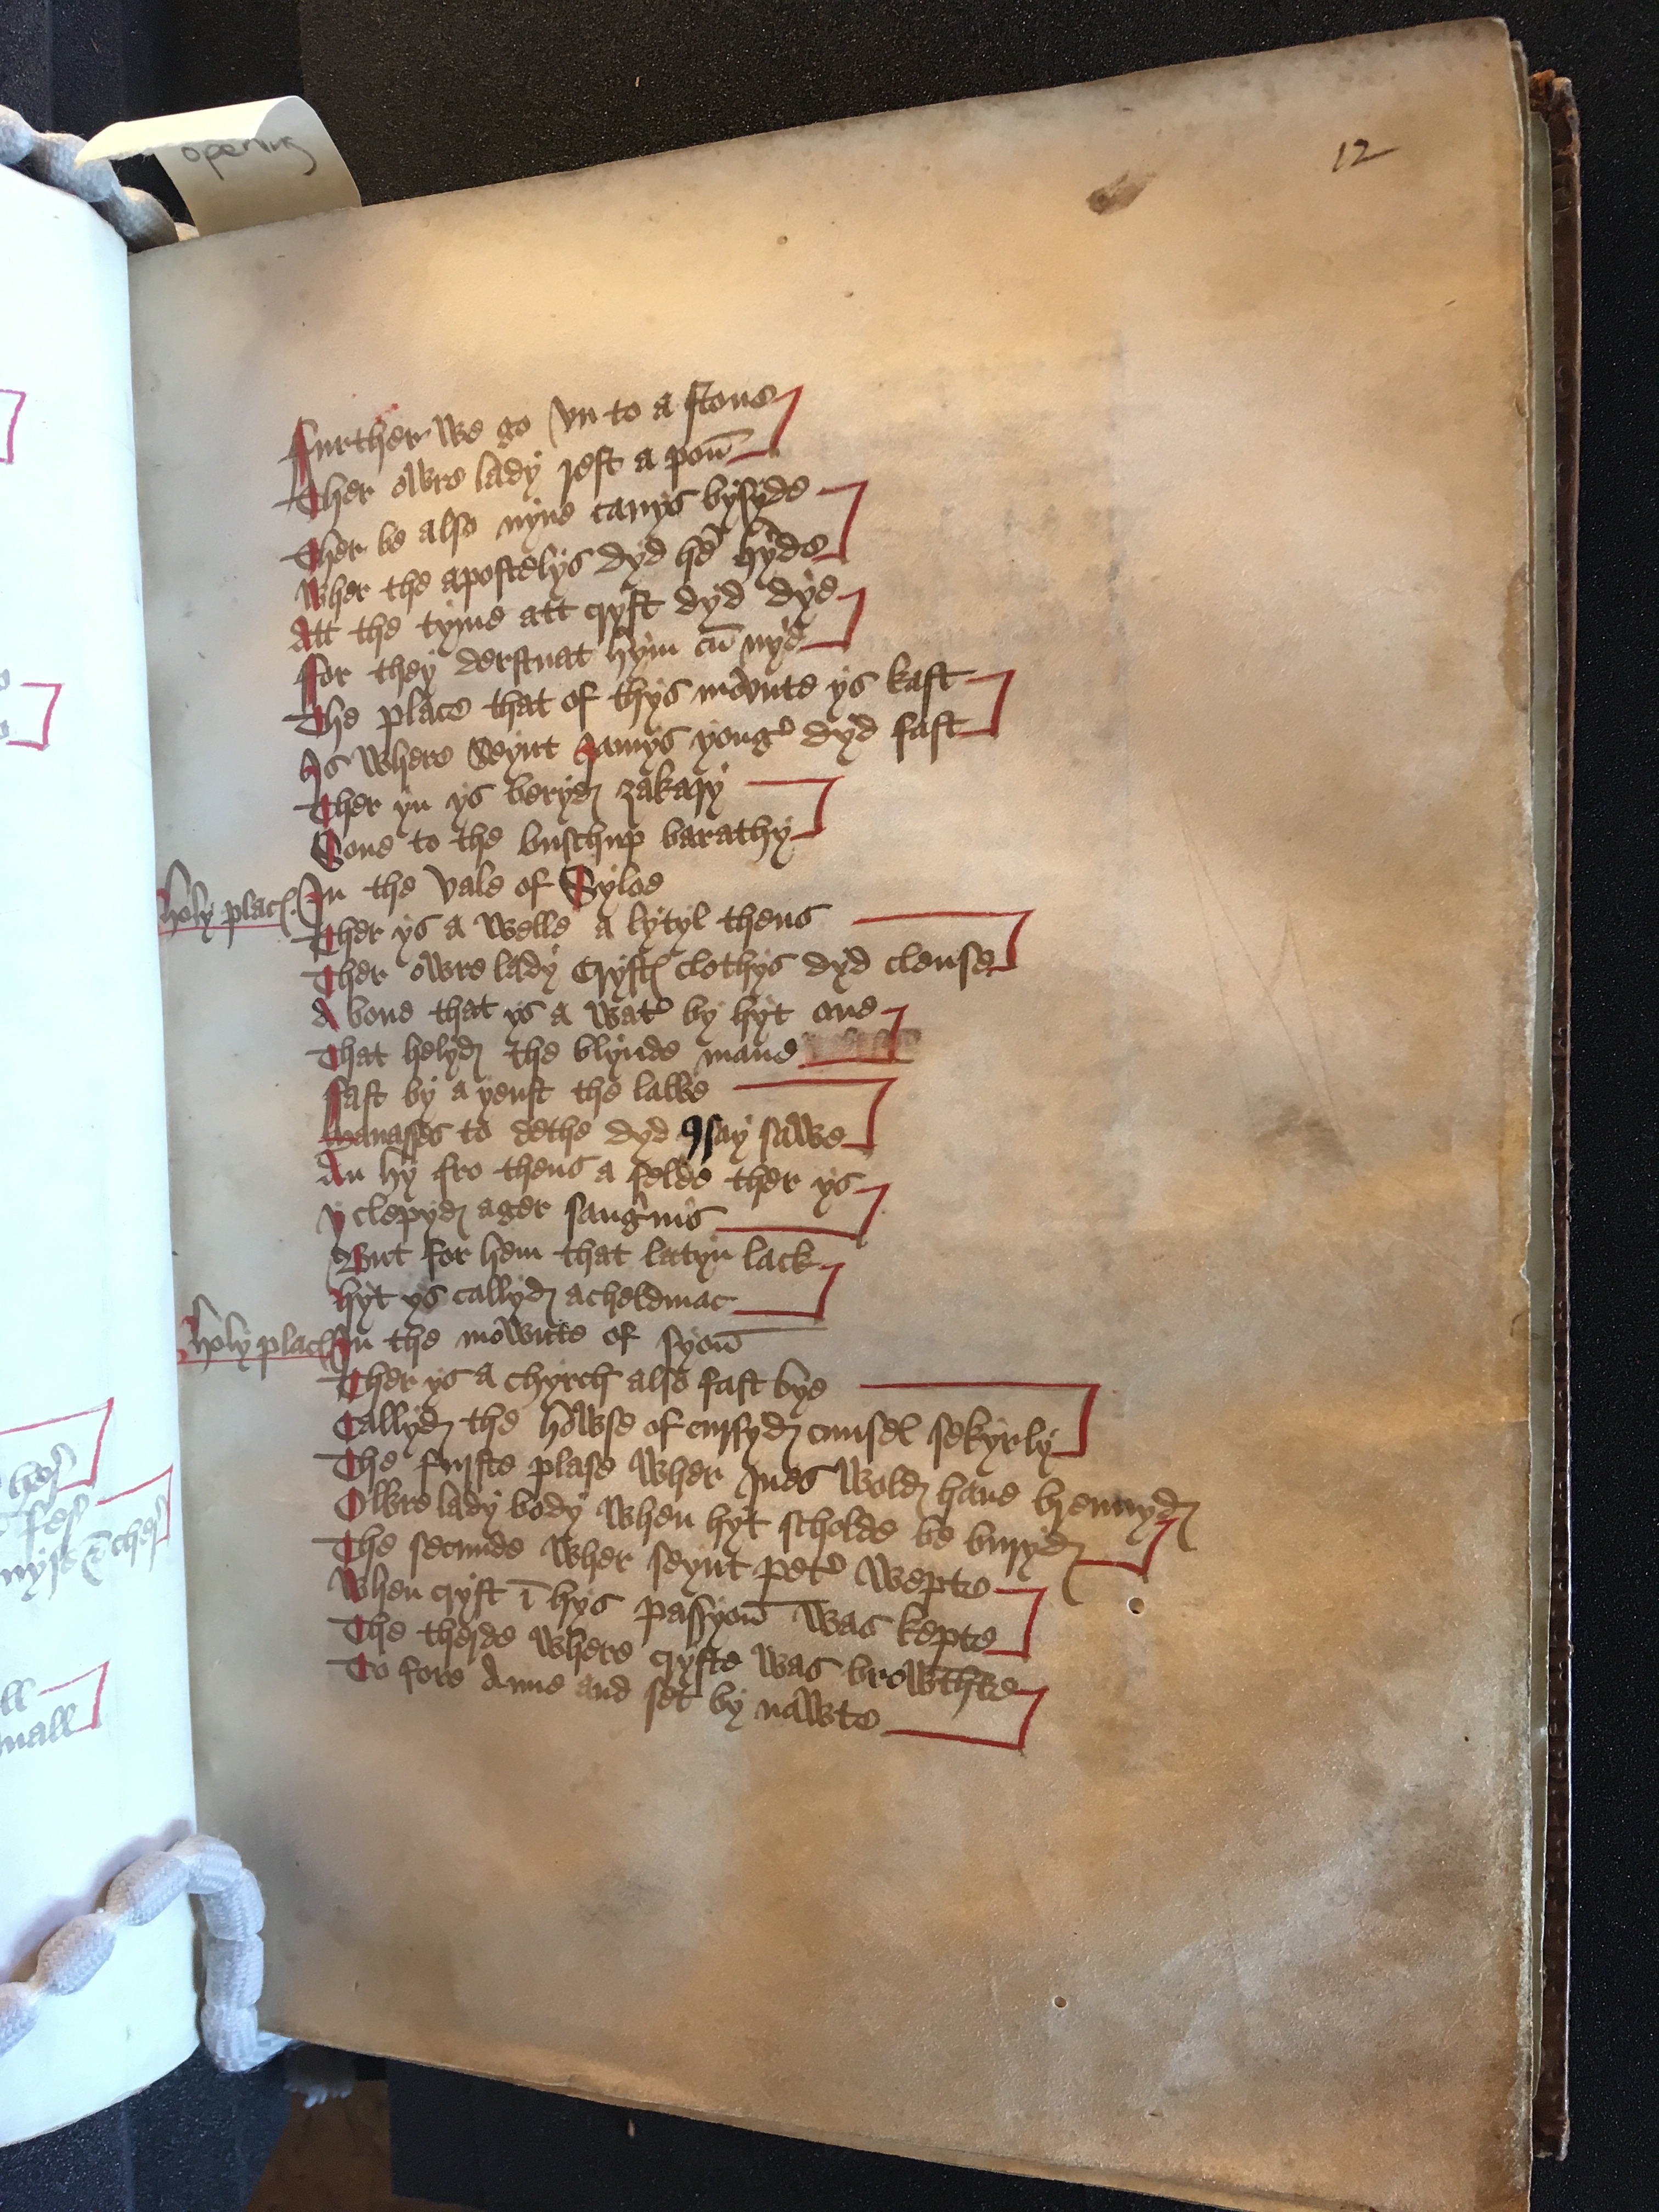 opening
12
Further we go vn to a stone
Ther owre lady rest a poū
Ther be also nyne cauys bysyde
Wher the apostelys dyd hē hyde
Att the tyme att cryst dyd dye
For they derstnat hym cū nye
The place that of thys mownte ys kast
Is where Seynt Jamys yonger dyd fast
Ther yn ys beryd zakary
Sone to the buschup barathy
holy place In the vale of Syloe
Ther ys a welle a lytyl thens
Ther owre lady Crystes clothys dyd clense
A bone that ys a water by hyt one
That helyd the blynde mane
Fast by a yenst the lawe
Manasses to dethe dyd ysay sawe
An hy fro thens a felde ther ys
y clepyd ager sanguinis
But for hem that latyn lack
hyt ys callyd acheldmac
holy place In the mownte of syoū
Ther ys a chyrch also fast bye
Callyd the howse of cursyd cunsel sekyrly
The furste plase wher Jues wold haue brennyd
Owre lady body when hyt scholde be buryd
The secunde wher seynt peter wepte
When cryst ī hys passyoū was kepte
The therde where cryste was browthte
To fore Anne and set by nawte